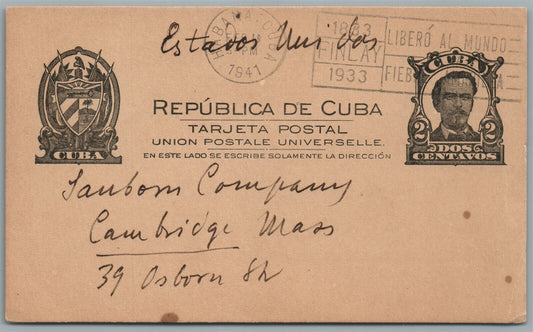 Estados Unidos
HABANA, CUBA
1941
1833
FINLAY
1933
LIBERÓ AL MUNDO
FIEB
CUBA
REPÚBLICA DE CUBA
TARJETA POSTAL
UNION POSTALE UNIVERSELLE.
EN ESTE LADO SE ESCRIBE SOLAMENTE LA DIRECCIÓN
CUBA
2 2
DOS
CENTAVOS
Sanborn Company
Cambridge Mass
39 Osborn St